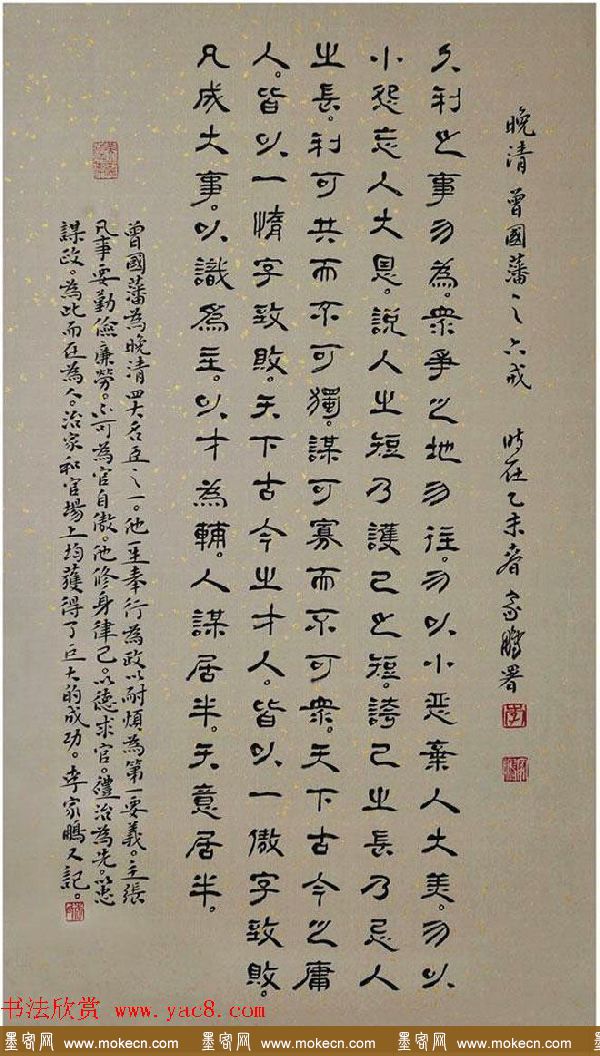 晚清 曾國藩之六戒 时在乙未春 家鵬署
久利之事勿為。衆爭之地勿往。勿以小惡棄人大美。勿以
小怨忘人大恩。說人之短乃護己之短。誇己之長乃忌人
之長。利可共而不可獨。謀可寡而不可衆。天下古今之庸
人。皆以一惰字致敗。天下古今之才人。皆以一傲字致敗。
凡成大事。以識為主。以才為輔。人謀居半。天意居半。
曾國藩為晚清四大名臣之一。他一生奉行為政以耐煩為第一要義。主張
凡事要勤儉廉勞。不可為官自傲。他修身律己。以德求官。禮治為先。以忠
謀政。為此而在為人。治家和官場上均獲得了巨大的成功。李家鵬又記。
书法欣赏 www.yac8.com
墨客网 www.mokecn.com 墨客网 www.mokecn.com 墨客网 www.mokecn.com